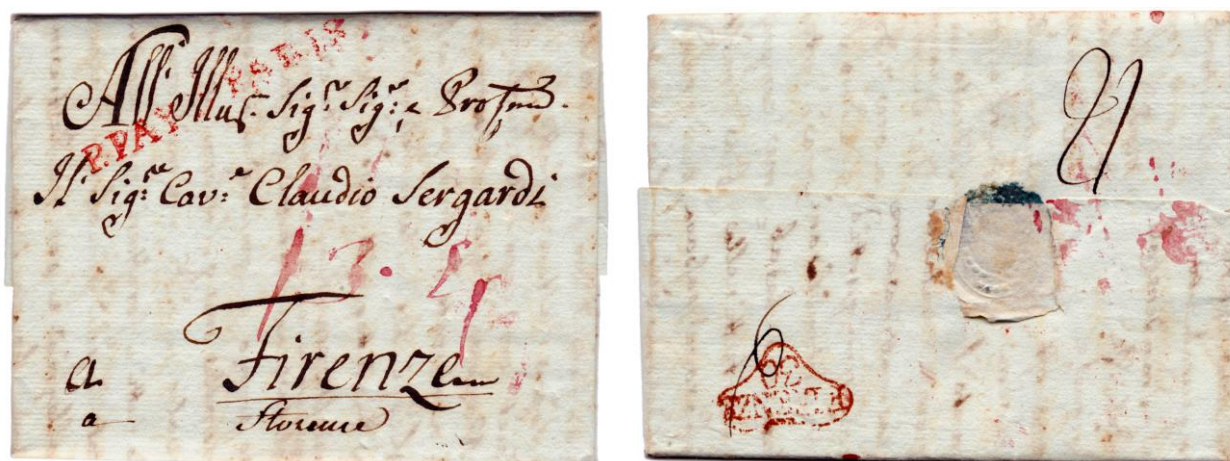 P.PAYÉ PARIS
All' Illus. Sig.re Sig.re e Pro
Il Sig.re Cav.e Claudio Sergardi
13.
a Firenze
a Florence
21
6